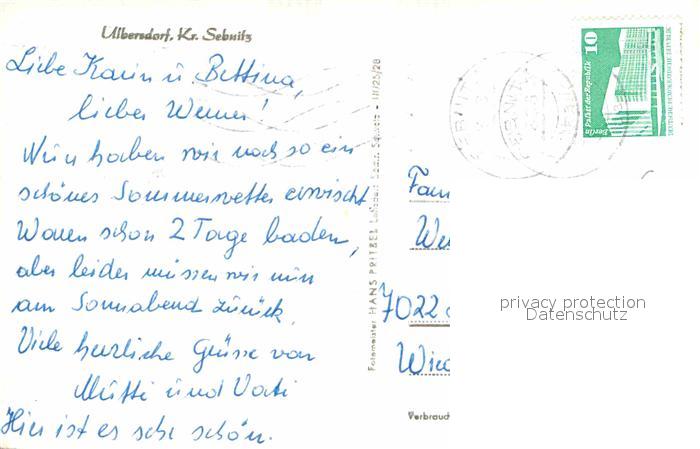 Ulbersdorf, Kr. Sebnitz
Liebe Karin u. Bettina,
lieber Werner!
Nun haben wir noch so ein
schönes Sommerwetter erwischt
Waren schon 2 Tage baden,
aber leider müssen wir nun
am Sonnabend zurück.
Viele herzliche Grüsse von
Mutti und Vati
Hier ist es sehr schön.
Fotomeister HANS PRITZEL
III/25/28
10
Berlin Palast der Republik
DEUTSCHE DEMOKRATISCHE REPUBLIK
Fam
7022
privacy protection
Datenschutz
Verbrauc